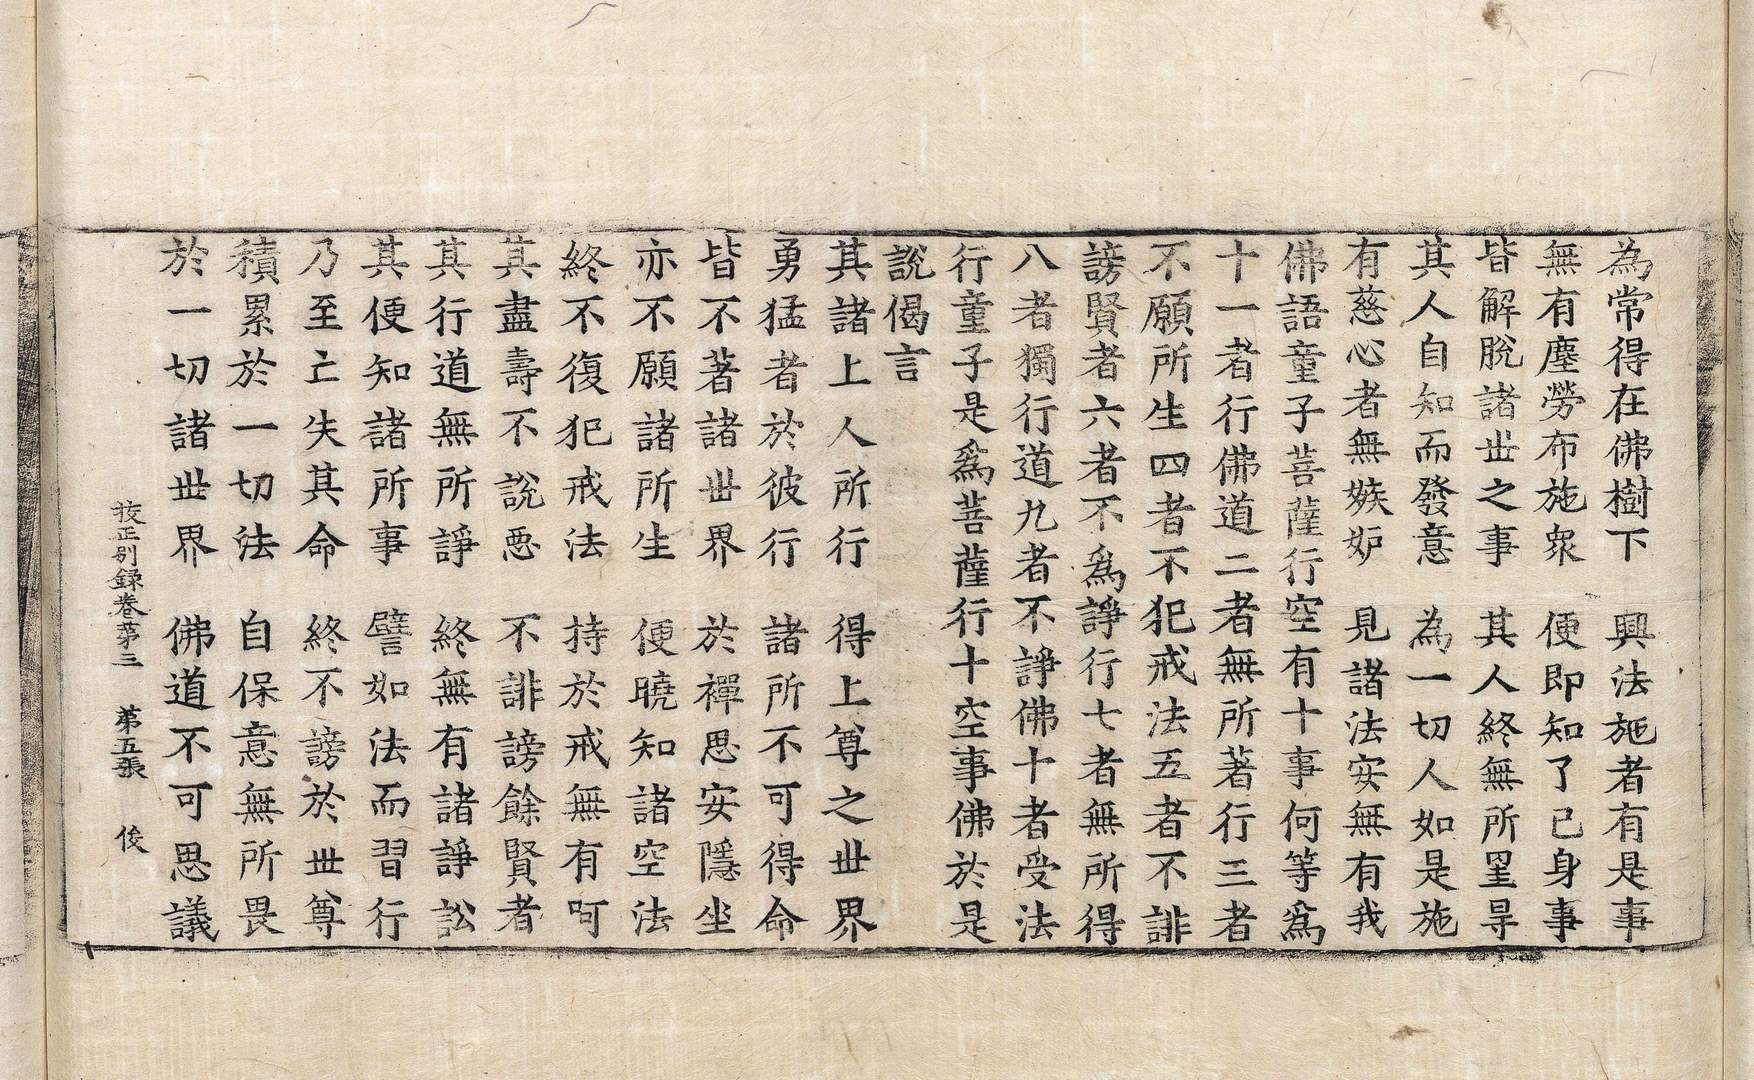 為常得在佛樹下　興法施者有是事
無有塵勞布施衆　便即知了己身事
皆解脫諸丗之事　其人終無所罣㝵
其人自知而發意　為一切人如是施
有慈心者無嫉妒　見諸法安無有我
佛語童子菩薩行空有十事何等爲
十一者行佛道二者無所著行三者
不願所生四者不犯戒法五者不誹
謗賢者六者不爲諍行七者無所得
八者獨行道九者不諍佛十者受法
行童子是爲菩薩行十空事佛於是
說偈言
其諸上人所行　得上尊之丗界
勇猛者於彼行　諸所不可得命
皆不著諸丗界　於禪思安隱坐
亦不願諸所生　便曉知諸空法
終不復犯戒法　持於戒無有呵
其盡壽不說惡　不誹謗餘賢者
其行道無所諍　終無有諸諍訟
其便知諸所事　譬如法而習行
乃至亡失其命　終不謗於丗尊
積累於一切法　自保意無所畏
於一切諸丗界　佛道不可思議
挍正别録卷苐三　苐五張　俊